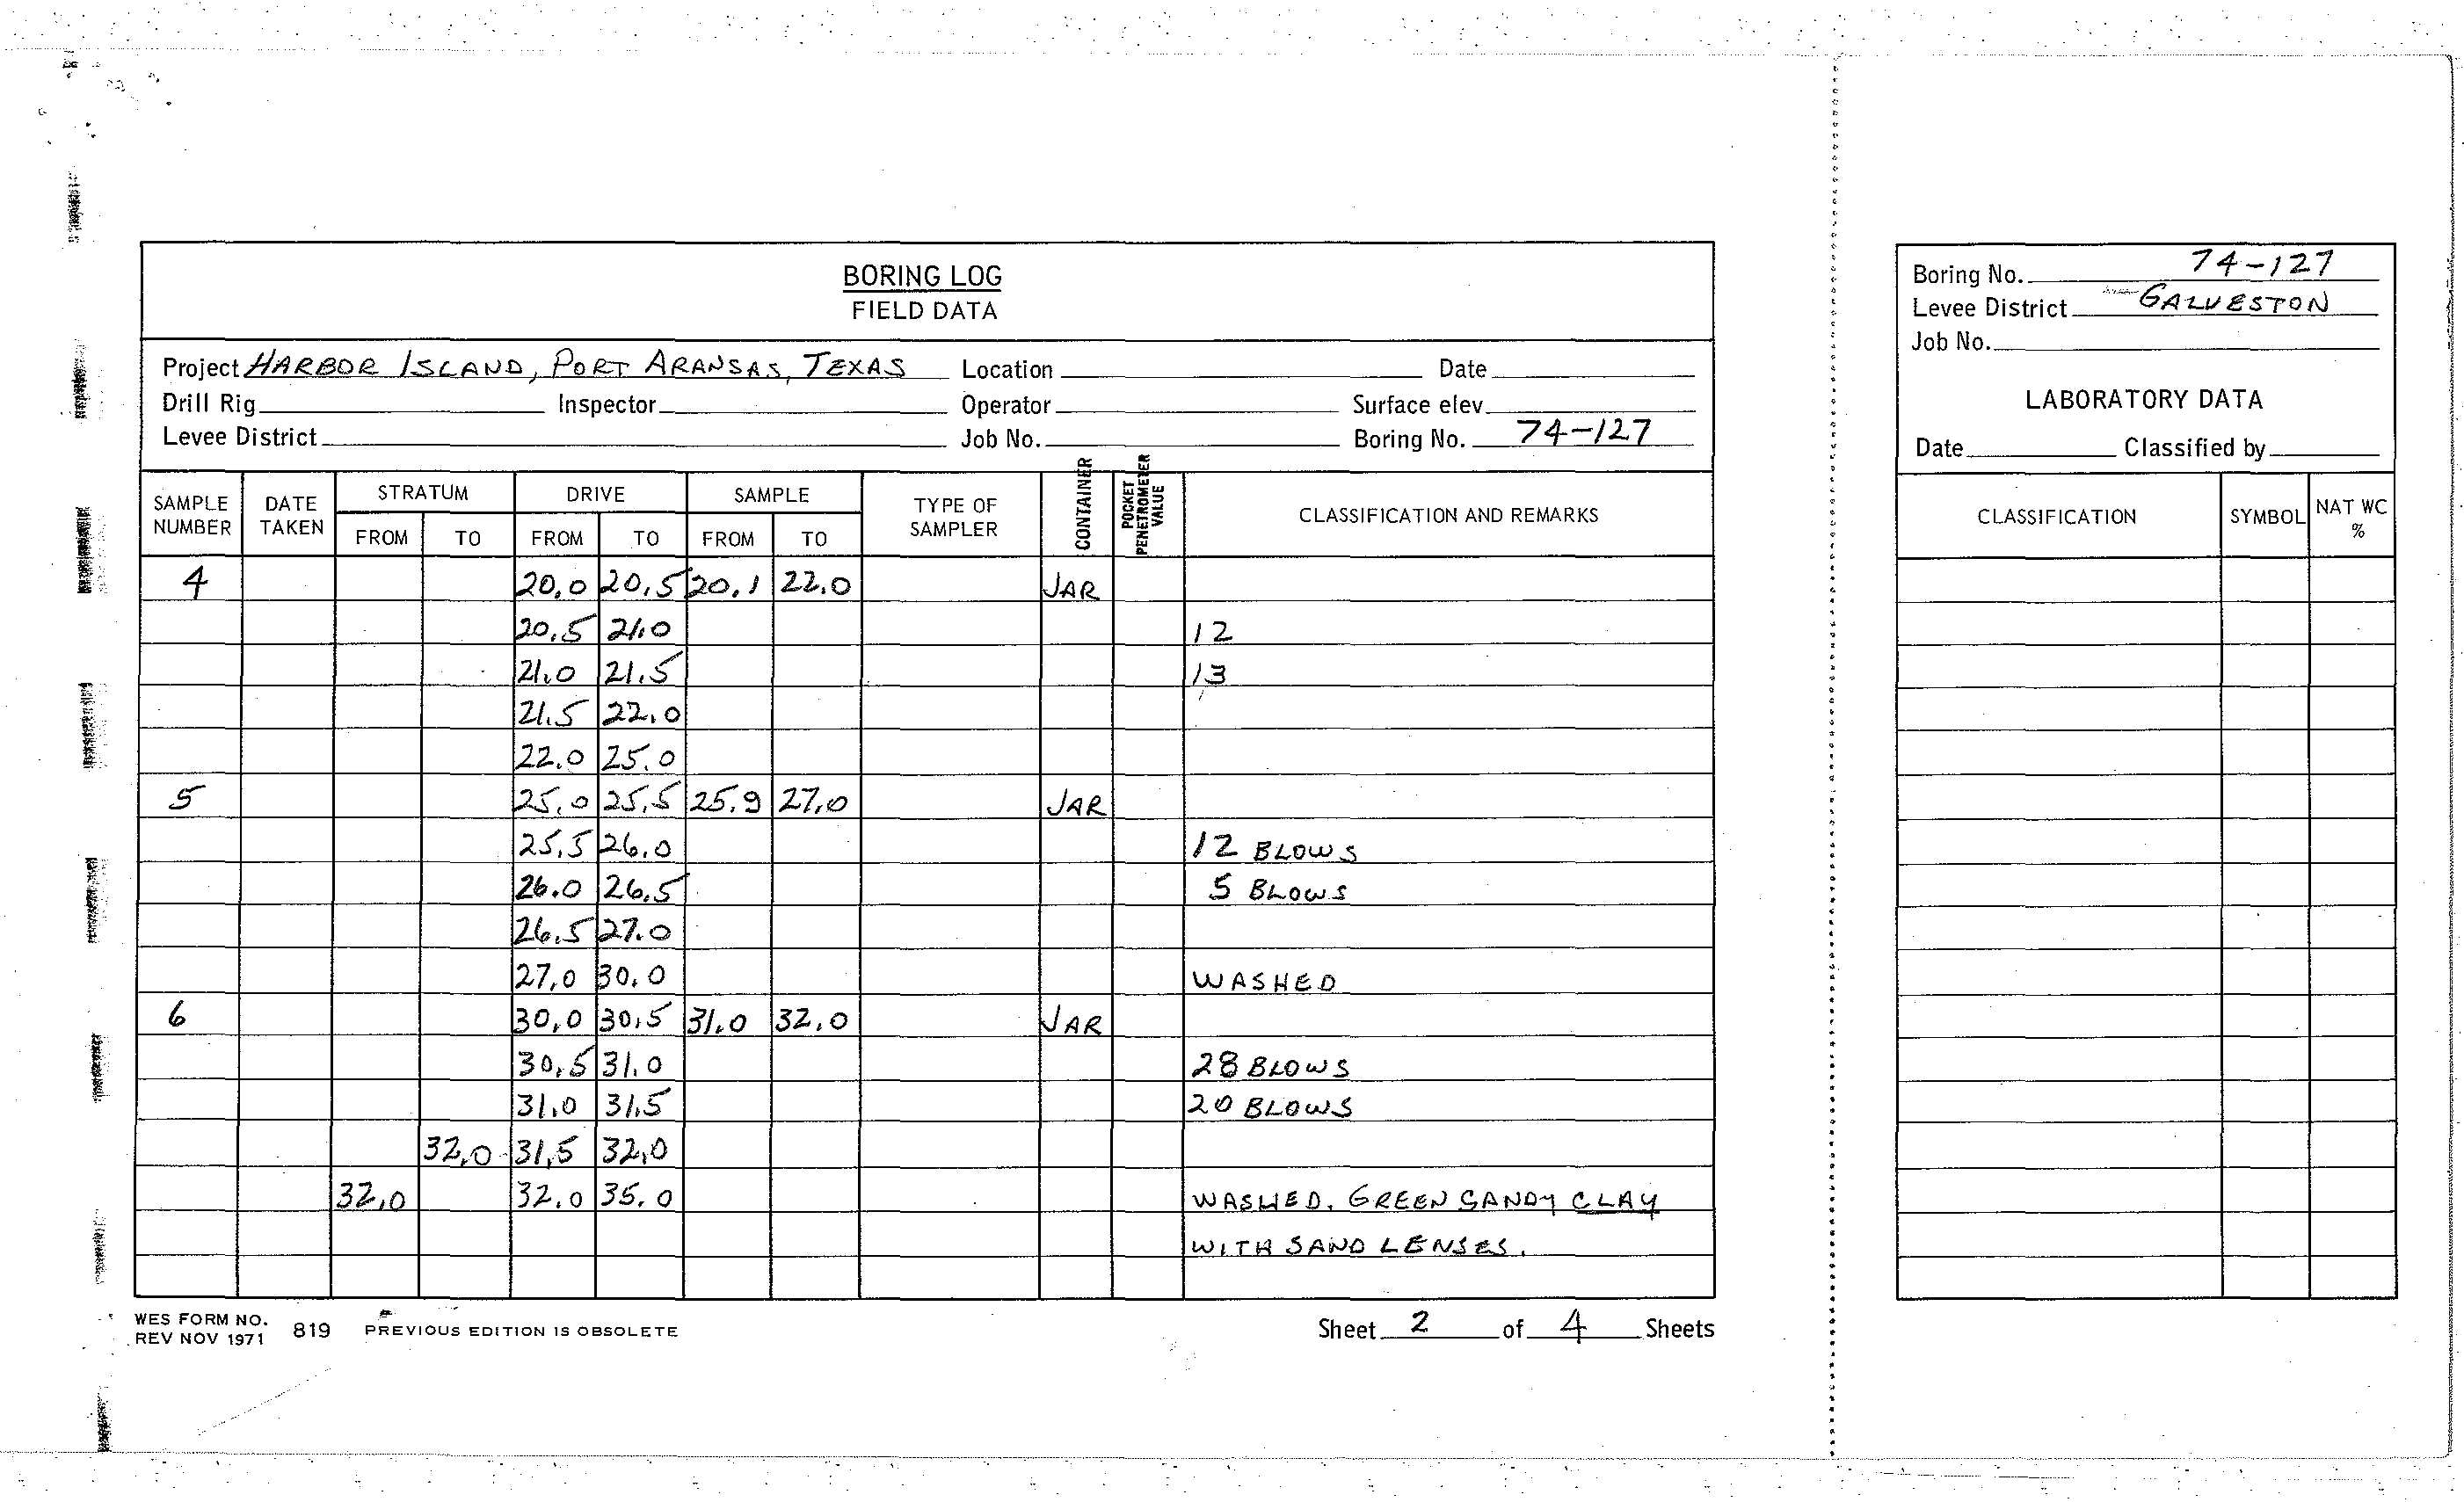 BORING LOG
FIELD DATA
Project HARBOR ISLAND, PORT ARANSAS, TEXAS Location Date
Drill Rig Inspector Operator Surface elev.
Levee District Job No. Boring No. 74-127
SAMPLE NUMBER DATE TAKEN STRATUM DRIVE SAMPLE TYPE OF SAMPLER CONTAINER POCKET PENETROMETER VALUE CLASSIFICATION AND REMARKS
FROM TO FROM TO FROM TO
4 20.0 20.5 20.1 22.0 JAR
20.5 21.0 12
21.0 21.5 13
21.5 22.0
22.0 25.0
5 25.0 25.5 25.9 27.0 JAR
25.5 26.0 12 BLOWS
26.0 26.5 5 BLOWS
26.5 27.0
27.0 30.0 WASHED
6 30.0 30.5 31.0 32.0 JAR
30.5 31.0 28 BLOWS
31.0 31.5 20 BLOWS
32.0 31.5 32.0
32.0 32.0 35.0 WASHED. GREEN SANDY CLAY
WITH SAND LENSES.
WES FORM NO. 819 PREVIOUS EDITION IS OBSOLETE
REV NOV 1971
Sheet 2 of 4 Sheets
Boring No. 74-127
Levee District GALVESTON
Job No.
LABORATORY DATA
Date Classified by
CLASSIFICATION SYMBOL NAT WC %